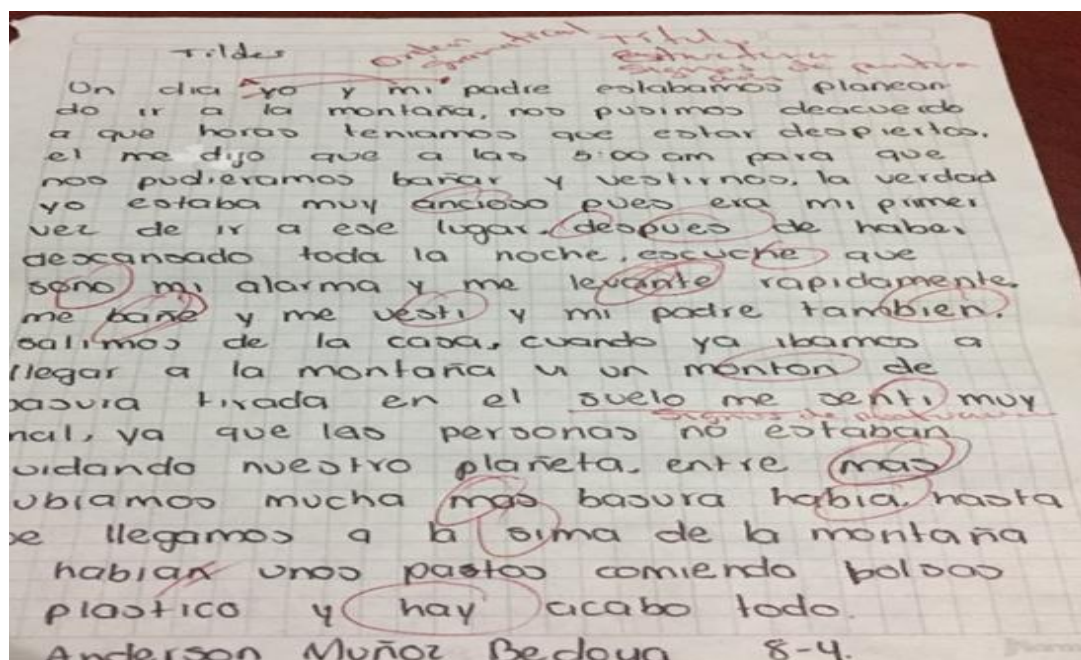 Tildes Orden gramatical Título
Estructura
Signos de puntua
Un dia yo y mi padre estabamos planean
do ir a la montaña, nos pusimos deacuerdo
a que horas teniamos que estar despiertos.
el me dijo que a las 5:00 am para que
nos pudieramos bañar y vestirnos. la verdad
yo estaba muy ancioso pues era mi primer
vez de ir a ese lugar. despues de haber
descansado toda la noche. escuche que
sono mi alarma y me levante rapidamente.
me bañe y me vesti y mi padre tambien.
salimos de la casa, cuando ya ibamos a
llegar a la montaña vi un monton de
basura tirada en el suelo me senti muy
Signos de puntuacion
mal, ya que las personas no estaban
uidando nuestro planeta. entre mas
ubiamos mucha mas basura habia. hasta
e llegamos a la sima de la montaña
habian unos pastos comiendo bolsas
plastico y hay acabo todo.
Anderson Muñoz Bedoya 8-4.